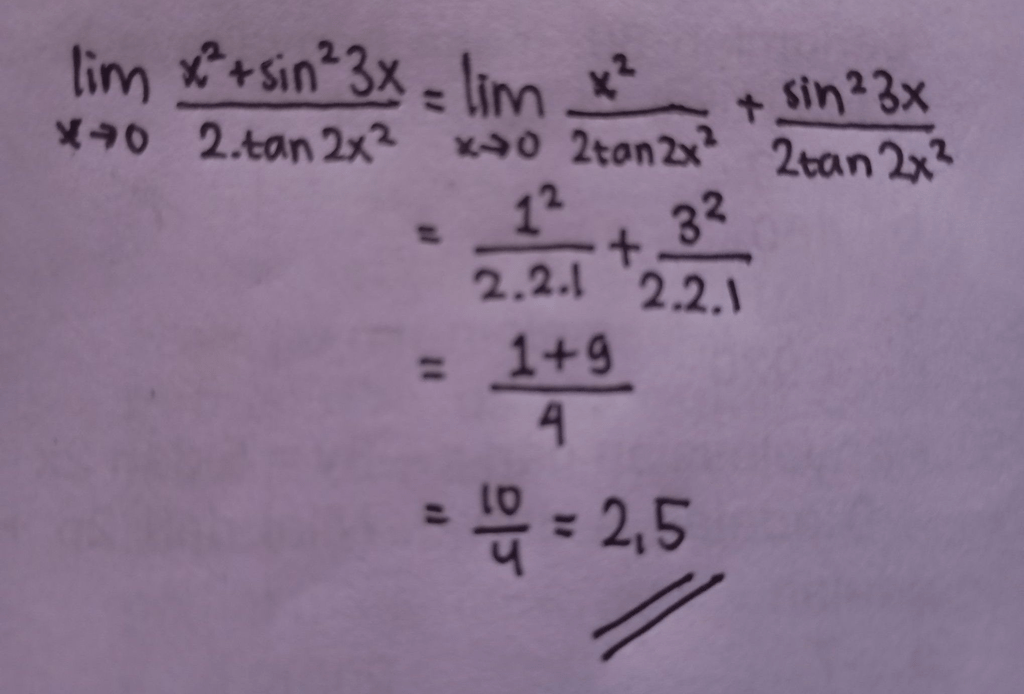 lim x→0 (x²+sin²3x)/(2.tan 2x²) = lim x→0 x²/(2tan2x²) + sin²3x/(2tan 2x²)
= 1²/(2.2.1) + 3²/(2.2.1)
= (1+9)/4
= 10/4 = 2,5